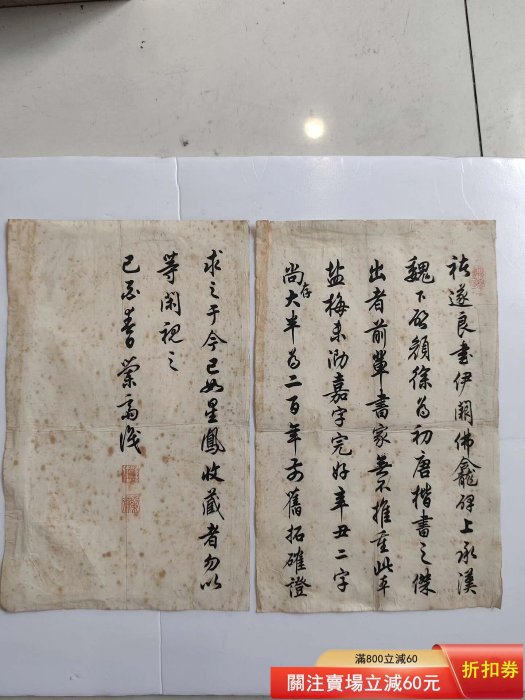 褚遂良書伊闕佛龕碑上承漢
魏下啟顏徐為初唐楷書之傑
出者前輩書家無不推重此本
盐梅未泐嘉字完好辛丑二字
尚存大半為二百年前舊拓確證
求之于今已如星鳳收藏者勿以
等閑視之
己酉春榮高識
滿800立減60
關注賣場立減60元
折扣券